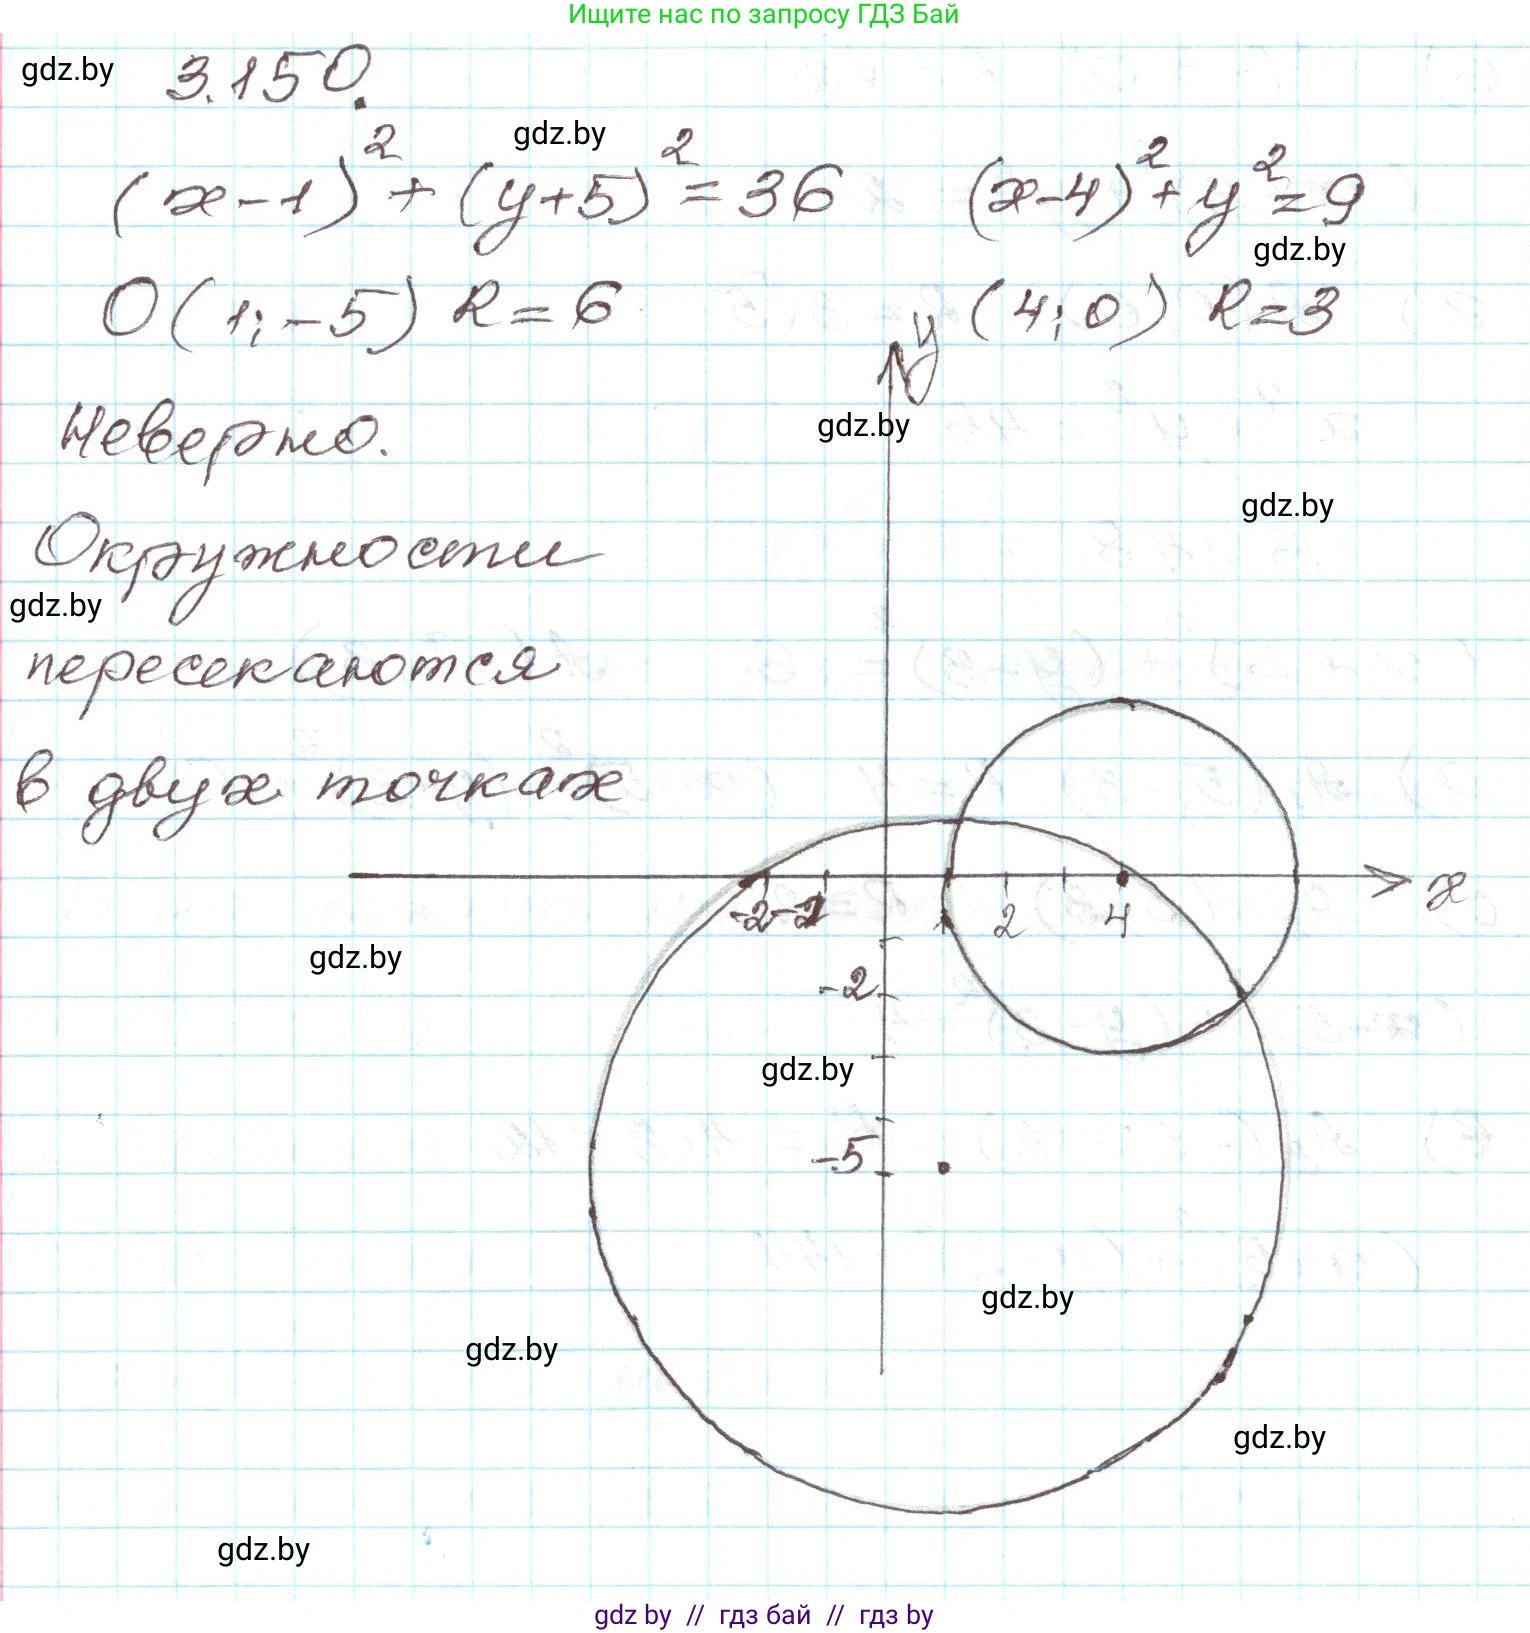 Ищите нас по запросу ГДЗ Бай
gdz.by
3.150.
gdz.by
(x-1)²+(y+5)²=36
(x-4)²+y²=9
gdz.by
O(1;-5) R=6
(4;0) R=3
y
Неверно.
gdz.by
gdz.by
Окружности
gdz.by
пересекаются
в двух точках
x
-2 -1 1 2 4
gdz.by
-2
gdz.by
-5
gdz.by
gdz.by
gdz.by
gdz.by
gdz by // гдз бай // гдз by